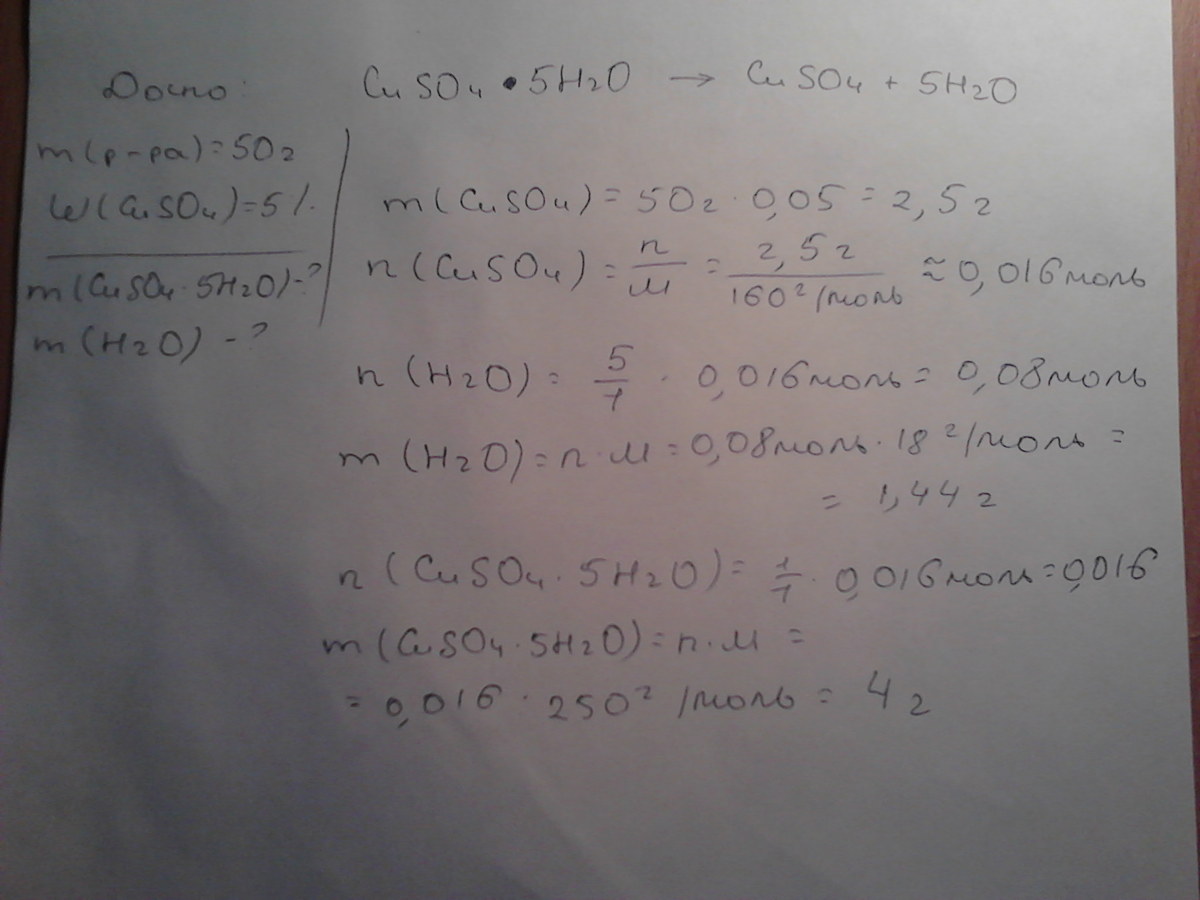 Дано:
CuSO4 • 5H2O → CuSO4 + 5H2O
m(р-ра)=50г
W(CuSO4)=5%.
m(CuSO4·5H2O)-?
m(H2O) -?
m(CuSO4) = 50г · 0,05 = 2,5г
n(CuSO4) = n/M = 2,5г/160г/моль ≈ 0,016моль
n(H2O) = 5/1 · 0,016моль = 0,08моль
m(H2O) = n·M = 0,08моль · 18 г/моль =
= 1,44 г
n(CuSO4·5H2O) = 1/1 · 0,016моль = 0,016
m(CuSO4·5H2O) = n·M =
= 0,016 · 250г/моль = 4 г